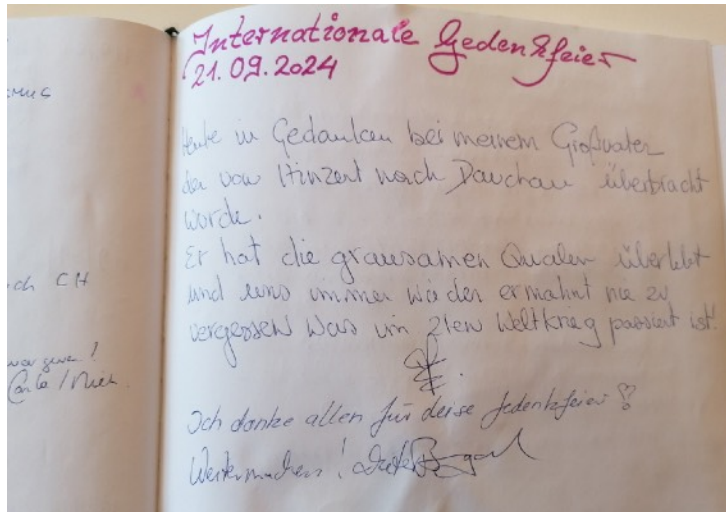 Internationale Gedenkfeier
21.09.2024
Heute in Gedanken bei meinem Großvater
der von Hinzert nach Dauchau überbracht
wurde.
Er hat die grausamen Qualen überlebt
und uns immer wieder ermahnt nie zu
vergessen was im 2ten Weltkrieg passiert ist!
Ich danke allen für deise Gedenkfeier
Weitermachen!
ch CH